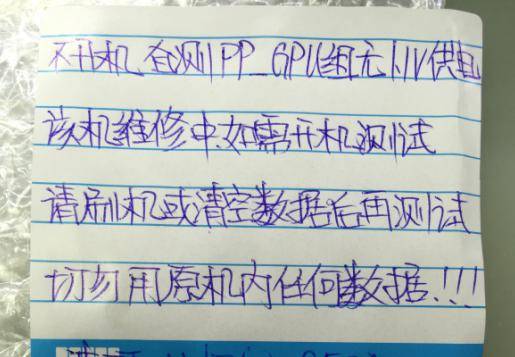 不开机 查测PP_GPU组无1.1V供电
该机维修中.如需开机测试
请刷机或清空数据后再测试
切勿用原机内任何数据.!!!